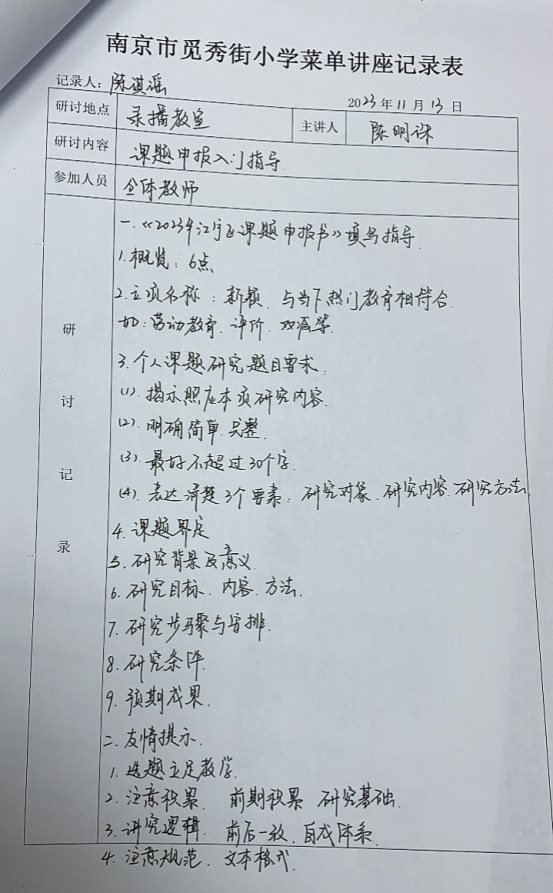 南京市觅秀街小学菜单讲座记录表
记录人：陈淇谣
2023年11月13日
研讨地点 录播教室 主讲人 陈明
研讨内容 课题申报入门指导
参加人员 全体教师
研讨记录
一.《2023年江宁区课题申报书》填写指导.
1.概览：6点
2.立项名称：新颖、与当下热门教育相符合.
如：劳动教育、评价、双减等
3.个人课题研究题目要求.
(1).揭示照应本项研究内容.
(2).明确简单.完整.
(3).最好不超过30个字.
(4).表达清楚3个要素：研究对象、研究内容、研究方法.
4.课题界定
5.研究背景及意义.
6.研究目标、内容、方法.
7.研究步骤与安排.
8.研究条件.
9.预期成果.
二.友情提示.
1.选题立足教学.
2.注意积累. 前期积累 研究基础.
3.讲究逻辑. 前后一致、自成体系.
4.注意规范、文本格式.